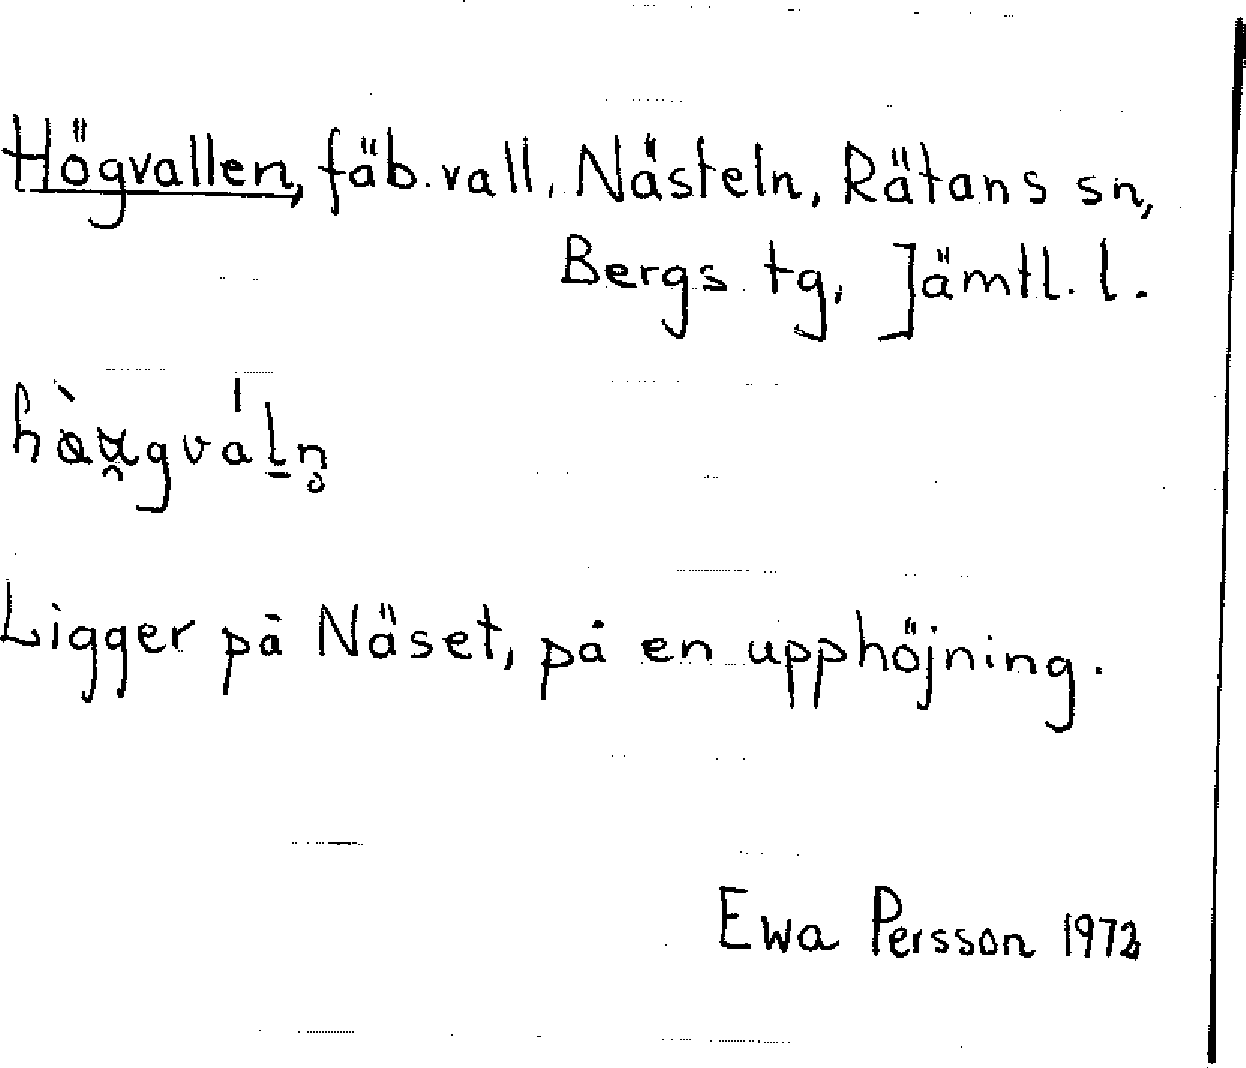 Högvallen, fäb.vall, Nästeln, Rätans sn,
Bergs tg, Jämtl. l.
Ligger på Näset, på en upphöjning.
Ewa Persson 1972